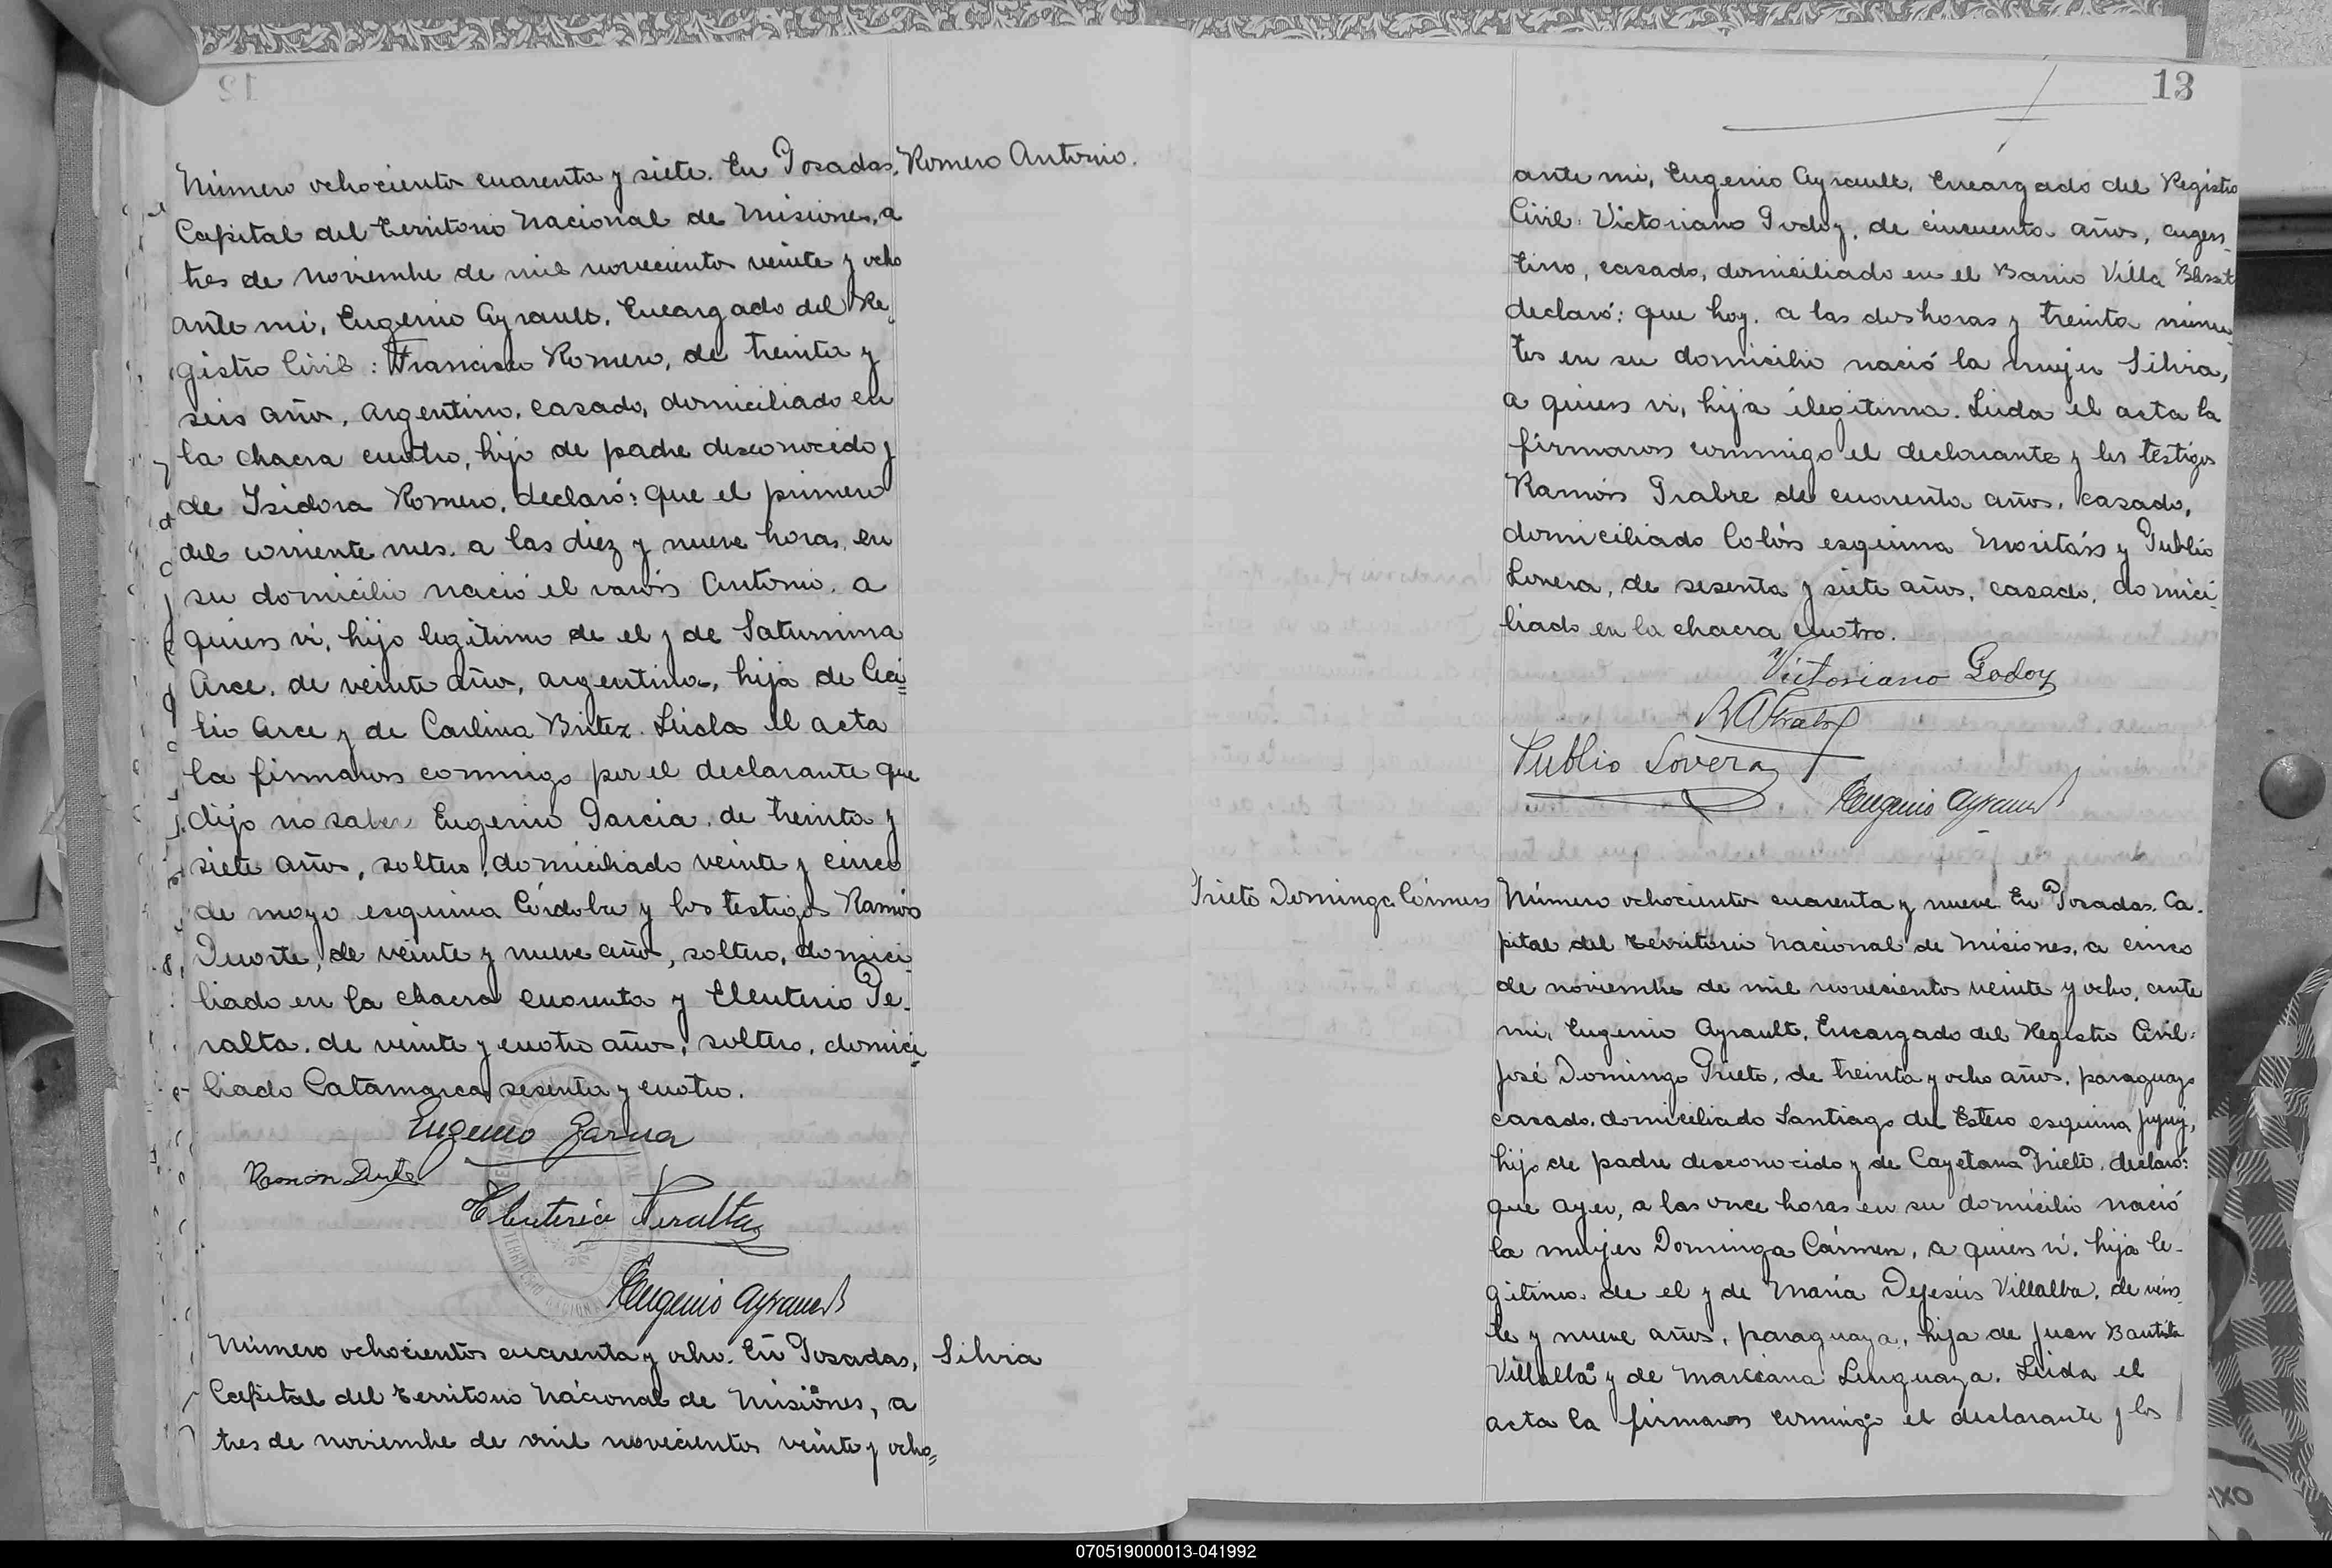 12
Romero Antonio.
Número ochocientos cuarenta y siete. En Posadas,
Capital del Territorio Nacional de Misiones, a
tres de noviembre de mil novecientos veinte y ocho
ante mi, Eugenio Ayrault, Encargado del Re-
gistro Civil: Francisco Romero, de treinta y
seis años, argentino, casado, domiciliado en
la chacra cuatro, hijo de padre desconocido y
de Isidora Romero, declaró: que el primero
del corriente mes, a las diez y nueve horas, en
su domicilio nació el varón Antonio, a
quien vi, hijo legitimo de el y de Saturnina
Arce, de veinte años, argentina, hija de Ceci=
lio Arce y de Carlina Britez. Leida el acta
la firmaron conmigo por el declarante que
dijo no saber Eugenio Garcia, de treinta y
siete años, soltero, domiciliado veinte y cinco
de mayo esquina Córdoba y los testigos Ramón
Duarte, de veinte y nueve años, soltero, domici-
liado en la chacra cuarenta y Eleuterio Pe-
ralta, de veinte y cuatro años, soltero, domici=
liado Catamarca sesenta y cuatro.
Eugenio Garcia
Ramon Duarte
Eleuterio Peralta
Eugenio Ayrault
Silvia
Número ochocientos cuarenta y ocho. En Posadas,
Capital del Territorio Nacional de Misiones, a
tres de noviembre de mil novecientos veinte y ocho=
13
ante mi, Eugenio Ayrault, Encargado del Registro
Civil: Victoriano Godoy, de cincuenta años, argen-
tino, casado, domiciliado en el Barrio Villa
declaró: que hoy, a las dos horas y treinta minu-
tos en su domicilio nació la mujer Silvia,
a quien vi, hija ilegitima. Leida el acta la
firmaron conmigo el declarante y los testigos
Ramón de cuarenta años, casado,
domiciliado Colón esquina y Publio
Lovera, de sesenta y siete años, casado, domici-
liado en la chacra cuatro.
Victoriano Godoy
Publio Lovera
Eugenio Ayrault
Prieto Dominga Cármen
Número ochocientos cuarenta y nueve En Posadas, Ca-
pital del Territorio Nacional de Misiones, a cinco
de noviembre de mil novecientos veinte y ocho, ante
mi, Eugenio Ayrault, Encargado del Registro Civil:
José Domingo Prieto, de treinta y ocho años, paraguayo
casado, domiciliado Santiago del Estero esquina Jujuy,
hijo de padre desconocido y de Cayetana Prieto, declaró:
que ayer, a las once horas en su domicilio nació
la mujer Dominga Cármen, a quien vi, hija le-
gitima de el y de María Dejesús Villalba, de vein-
te y nueve años, paraguaya, hija de Juan Bautista
Villalba y de Marciana Linguaza. Leida el
acta la firmaron conmigo el declarante y los
070519000013-041992